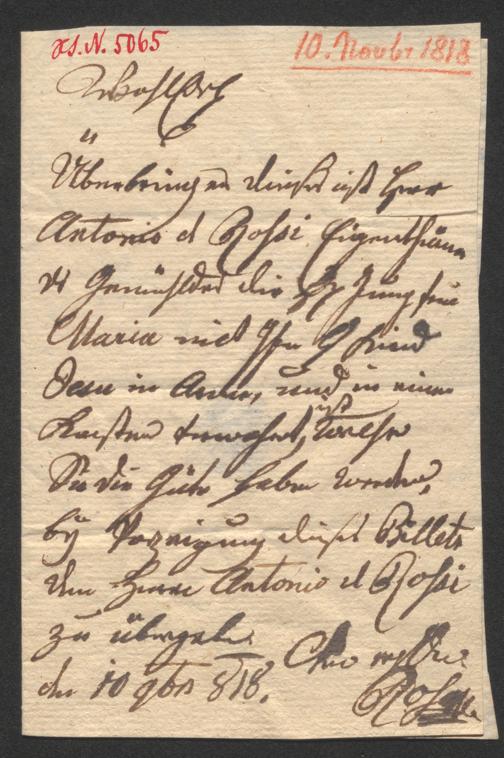 H.I.N. 5065
10. Novbr 1818
Überbringer dieses ist Herr
Antonio d Rossi, Eigenthümer
des Gemähldes die Hl Jungfrau
Maria mit Ihrem Kind
Jesu in Arme, und in einem
Kasten verwahrt ist, welches
Sie die Güte haben werden,
bey Vorzeigung dieses Billets
dem Herrn Antonio d Rossi
zu übergeben.
den 10 9ber 818.